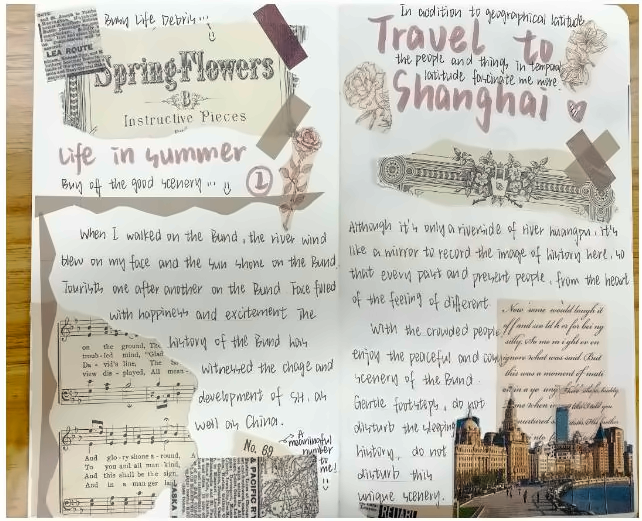 Busy Life Debris...
LEA ROUTE
Spring-Flowers
B
Instructive Pieces
Life in summer
Buy off the good scenery ...
1
When I walked on the Bund, the river wind
blew on my face and the sun shone on the Bund.
Tourists one after another on the Bund Face filled
with happiness and excitement The
history of the Bund has
witnessed the chage and
development of SH, as
well as China.
on the ground, The
troub-led mind, "Glad
Da-vid's line, The
view dis-played, All mean
And glo-ry shone a-round, A
To you and all man kind,
And this shall be the sign,
And in a man-ger
No. 69
A meaningful
number
to me!
PACIFIC
ASKA
In addition to geographical latitude
Travel to
the people and things in temporal
latitude fascinate me more.
Shanghai
Although it's only a riverside of river huangpu, it's
like a mirror to record the image of history here, so
that every past and present people, from the heart
of the feeling of different
With the crowded people
enjoy the peaceful and
scenery of the Bund.
Gentle footsteps, do not
disturb the sleeping
history, do not
disturb this
unique scenery.
Now some would laugh it
off and
silly.
what was said. But
this was a moment of